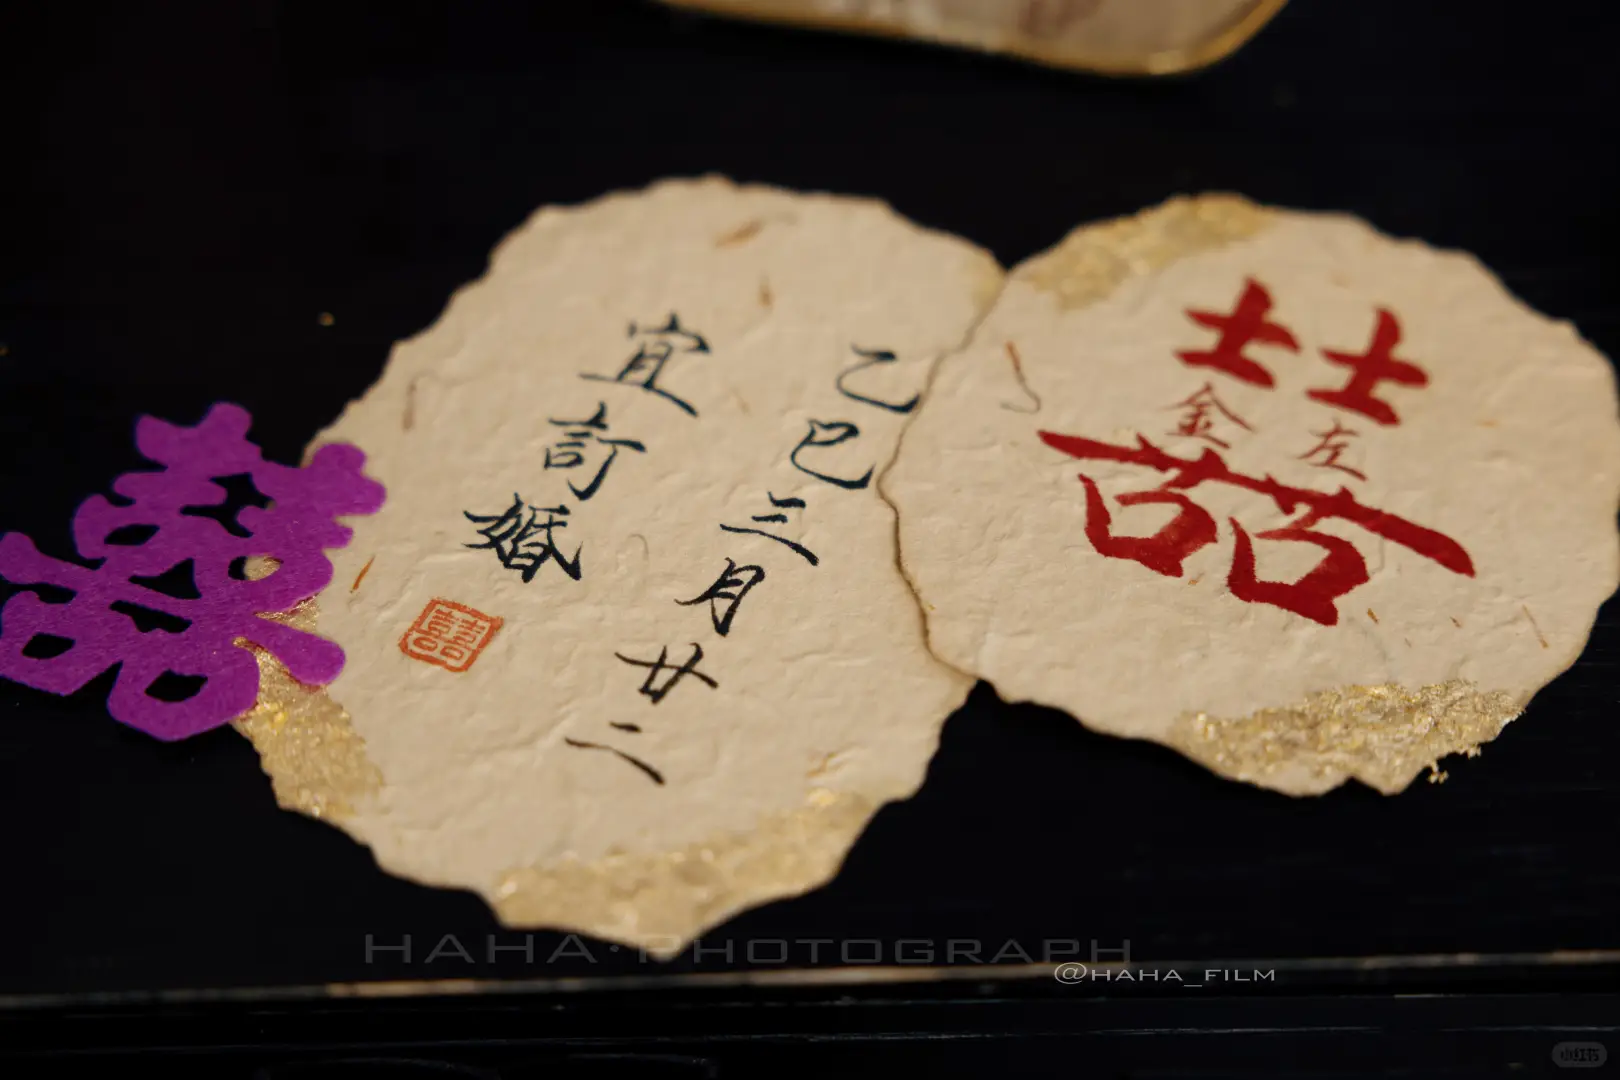 囍
金 左
乙巳三月廿二
宜訂婚
囍
囍
HAHA·PHOTOGRAPH
@HAHA_FILM
小红书